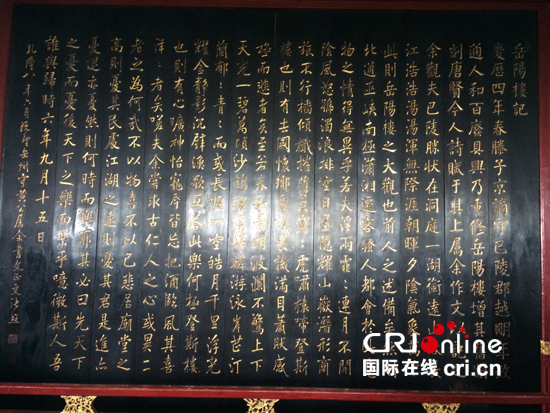 岳陽樓記
慶曆四年春滕子京謫守巴陵郡越明年政
通人和百廢具興乃重修岳陽樓增其舊
刻唐賢今人詩賦于其上屬余作文以記
余觀夫巴陵勝狀在洞庭一湖銜遠山
江浩浩湯湯渾無際涯朝暉夕陰氣象
此則岳陽樓之大觀也前人之述備矣
北通巫峽南極瀟湘遷客騷人多會於
物之情得無異乎若夫霪雨霏:連月不開
陰風怒號濁浪排空日星隱耀山嶽潛形商
旅不行檣傾楫摧薄暮冥:虎嘯猿啼登斯
樓也則有去國懷鄉憂讒畏譏滿目蕭然感
極而悲者矣至若春和景明波瀾不驚上下
天光一碧萬頃沙鷗翔集錦鱗游泳岸芷汀
蘭郁:青:而或長煙一空皓月千里浮光
耀金靜影沉璧漁歌互答此樂何極登斯樓
也則有心曠神怡寵辱皆忘把酒臨風其喜
洋:者矣嗟夫余嘗求古仁人之心或異二
者之為何哉不以物喜不以己悲居廟堂之
高則憂其民處江湖之遠則憂其君是進亦
憂退亦憂然則何時而樂耶其必曰先天下
之憂而憂後天下之樂而樂乎噫微斯人吾
誰與歸時六年九月十五日
CRIonline
国际在线 cri.cn